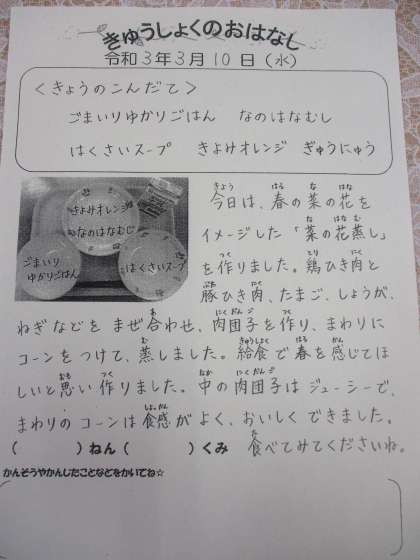 きゅうしょくのおはなし
令和3年3月10日(水)
<きょうのこんだて>
ごまいりゆかりごはん なのはなむし
はくさいスープ きよみオレンジ ぎゅうにゅう
きよみオレンジ
なのはなむし
ごまいり
ゆかりごはん
はくさいスープ
今日は、春の菜の花を
イメージした「菜の花蒸し」
を作りました。鶏ひき肉と
豚ひき肉、たまご、しょうが、
ねぎなどを まぜ合わせ、肉団子を作り、まわりに
コーンをつけて、蒸しました。給食で春を感じてほ
しいと思い作りました。中の肉団子はジューシーで、
まわりのコーンは食感がよく、おいしくできました。
( )ねん( )くみ 食べてみてくださいね。
かんそうやかんしたことなどをかいてね☆